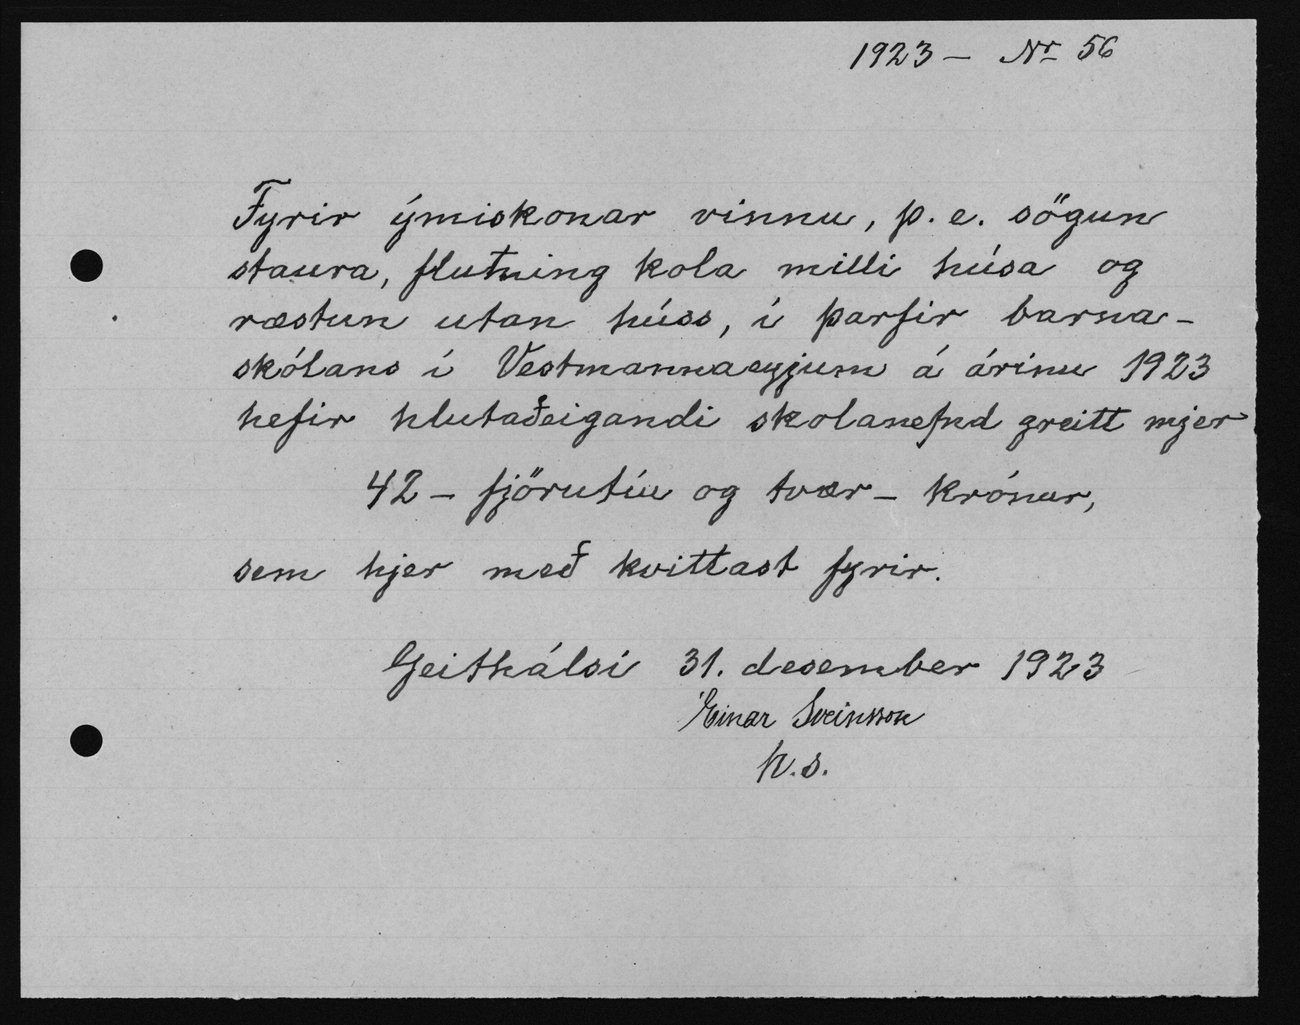 1923 – Nr 56
Fyrir ýmiskonar vinnu, þ. e. sögun
staura, flutning kola milli húsa og
ræstun utan húss, í þarfir barna-
skólans í Vestmannaeyjum á árinu 1923
hefir hlutaðeigandi skolanefnd greitt mjer
42 – fjörutíu og tvær – krónur,
sem hjer með kvittast fyrir.
Geithálsi 31. desember 1923
Einar Sveinsson
h. s.